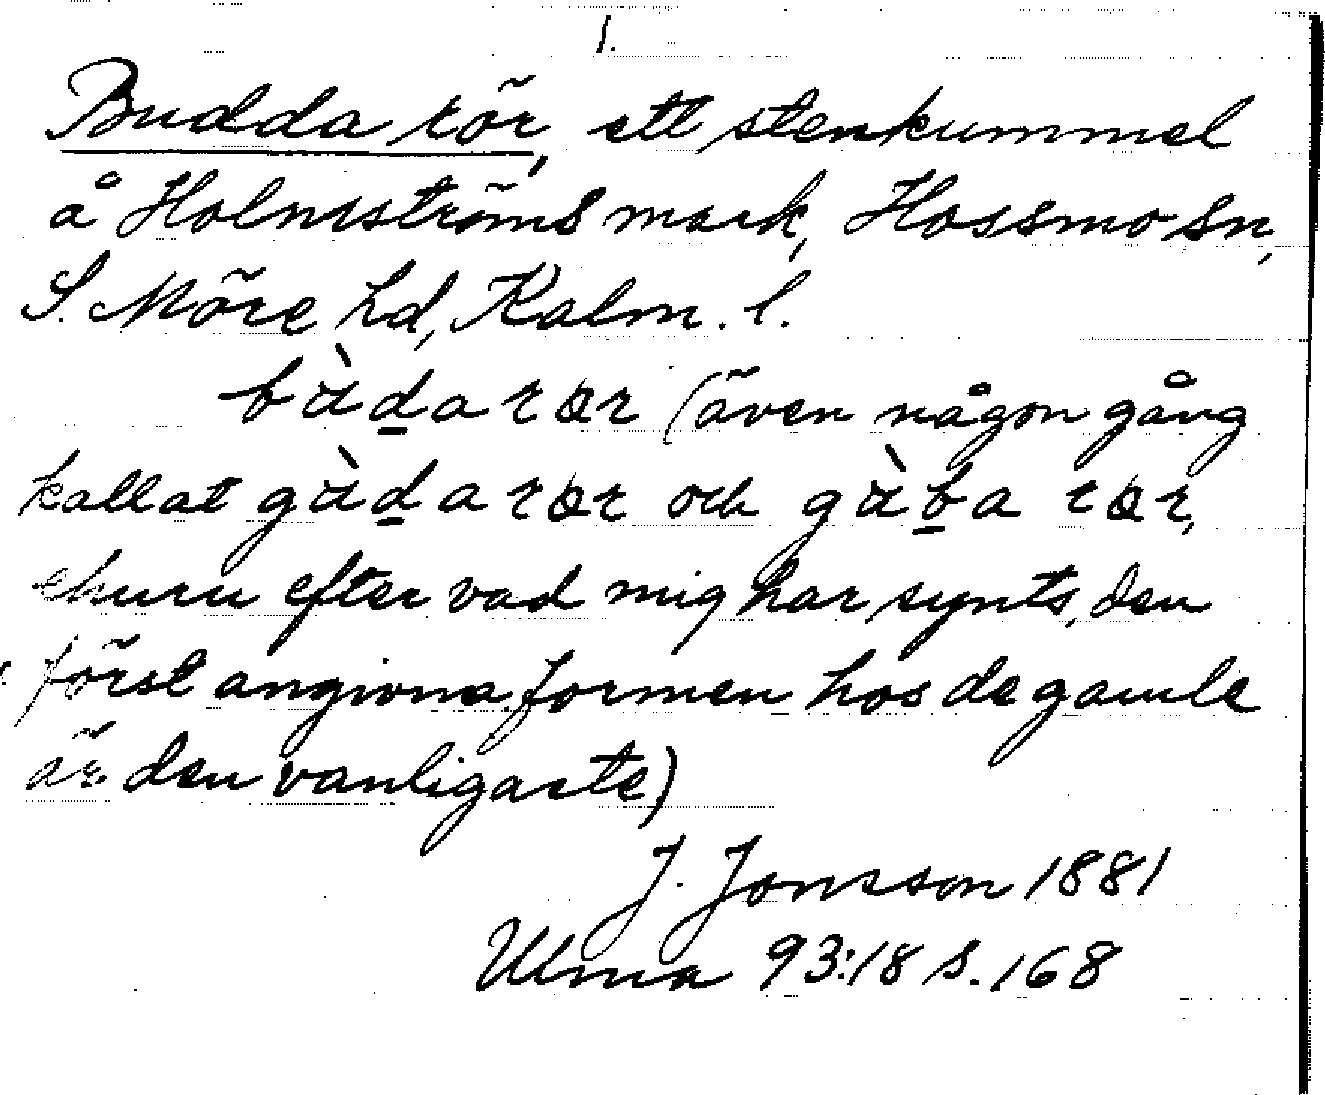 1.
Budda rör, ett stenkummel
å Holmströms mark, Hossmo sn,
S. Möre hd, Kalm. l.
bùda rør (även någon gång
kallat gùda rør och gùba rør,
ehuru efter vad mig har synts, den
först angivna formen hos de gamle
är den vanligaste)
J. Jonsson 1881
Ulma 93:18 s. 168